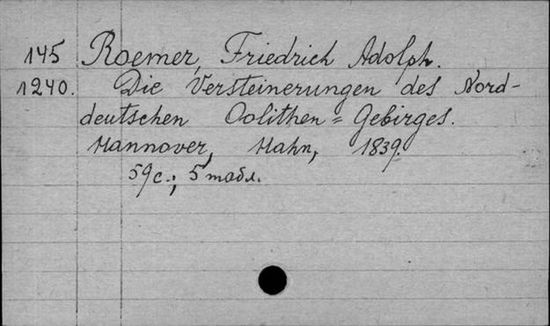 145 Roemer, Friedrich Adolph.
1240. Die Versteinerungen des Nord-
deutschen Oolithen = Gebirges.
Hannover, Hahn, 1839.
59 с.; 5 табл.